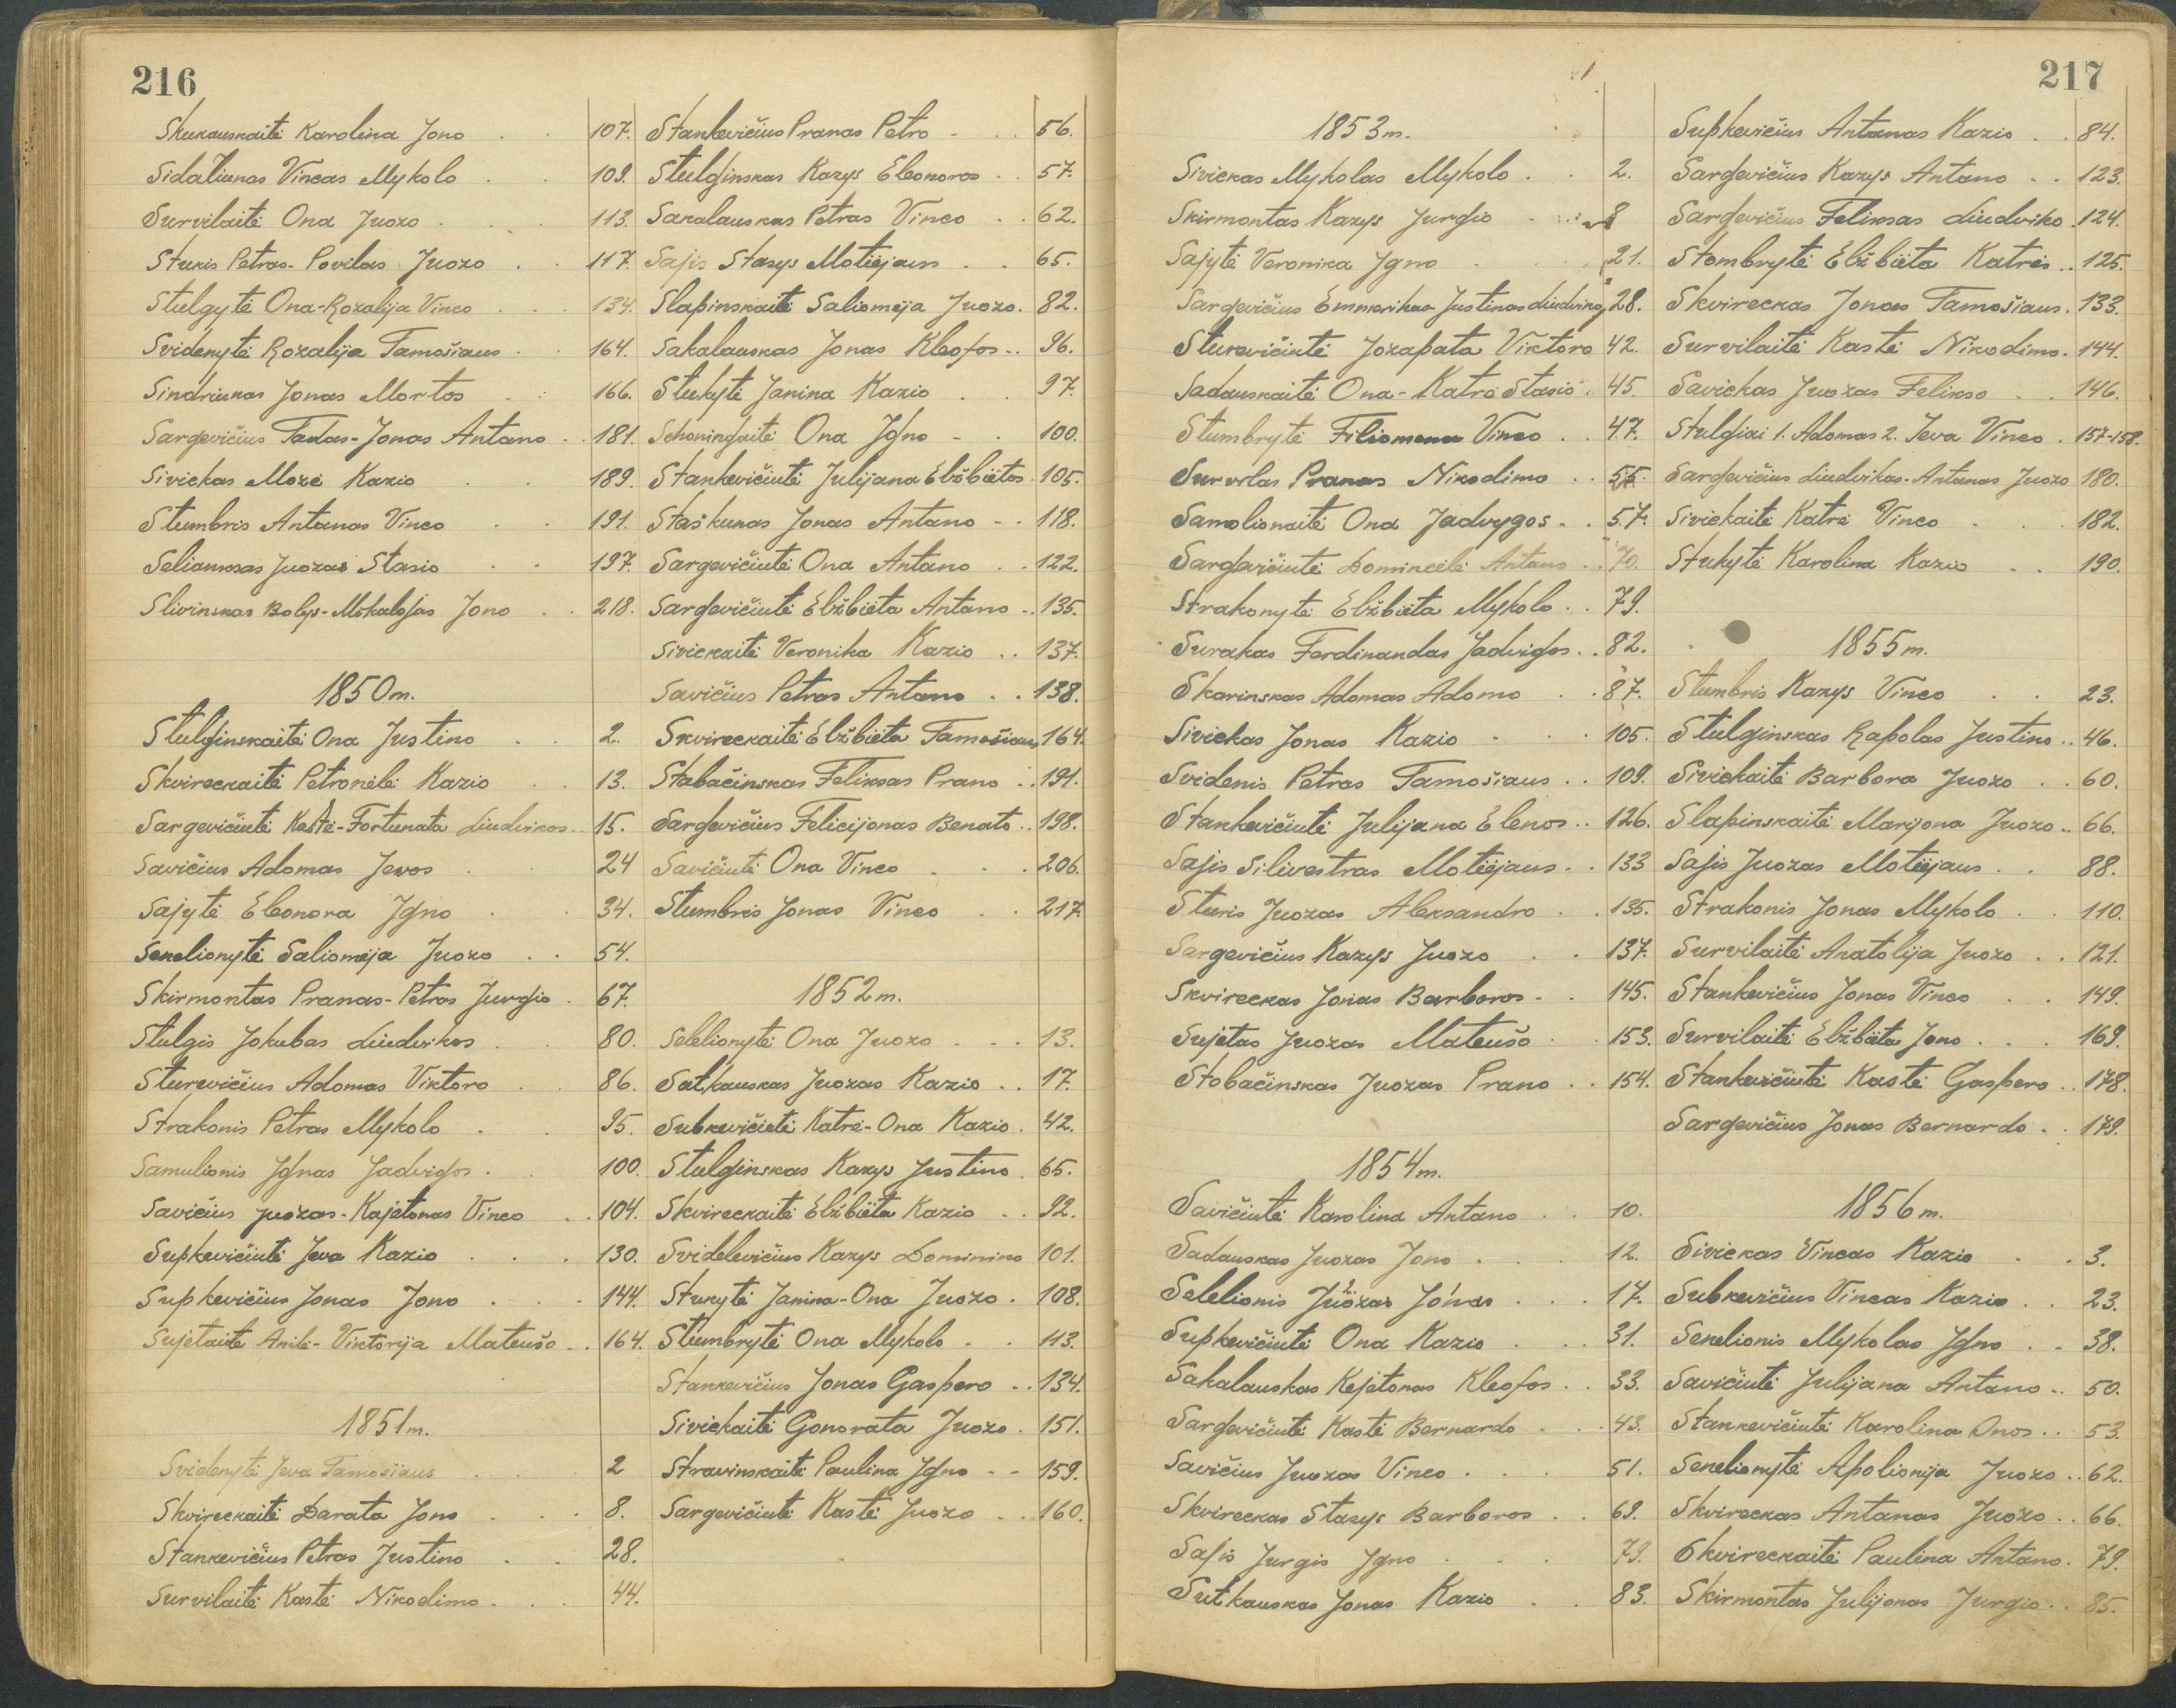 216
Skukauskaitė Karolina Jono . . 107.
Sidaliunas Vincas Mykolo . . 109.
Survilaitė Ona Juozo . . . 113.
Stukis Petras-Povilas Juozo . . 117.
Stulgytė Ona-Rozalija Vinco . . . 134.
Svidenytė Rozalija Tamošiaus . . 164.
Sindriukas Jonas Mortos . . 166.
Sargevičius Tadas-Jonas Antano . . 181.
Sivickas Mozė Kazio . . 189.
Stumbris Antanas Vinco . . 191.
Juozas Stasio . . 197.
Slivinskas Bolys-Mikalojas Jono . . 218.
1850 m.
Stulginskaitė Ona Justino . . 2.
Skvireckaitė Petronėlė Kazio . . 13.
Sargevičiutė Kastė-Fortunata Liudvikos . . 15.
Savičius Adomas Jevos . . 24
Sajytė Eleonora Jgno . . 34.
Senelionytė Saliomėja Juozo . . 54.
Skirmontas Pranas-Petras Jurgio . 67.
Stulgis Jokubas Liudvikos . . 80.
Sturevičius Adomas Viktoro . . 86.
Strakonis Petras Mykolo . . 95.
Samulionis Jgnas Jadvigos . . 100.
Savičius Juozas-Kajetonas Vinco . . 104.
Supkevičiutė Jeva Kazio . . . 130.
Supkevičius Jonas Jono . . . 144.
Sujetaitė Anilė-Viktorija Mateušo . . 164.
1851 m.
Svidenytė Jeva Tamošiaus . . . 2
Skvireckaitė Darata Jono . . . 8.
Stankevičius Petras Justino . . 28.
Survilaitė Kastė Nikodimo . . . 44.
Stankevičius Pranas Petro - . . 56.
Stulginskas Kazys Eleonoros . . 57.
Sakalauskas Petras Vinco . . 62.
Sajis Stasys Motiejaus . . 65.
Slapinskaitė Saliomėja Juozo . 82.
Sakalauskas Jonas Kleofos . . 96.
Stukytė Janina Kazio . . 97.
Schoningaitė Ona Jgno - . 100.
Stankevičiutė Julijana Elžbietos . 105.
Staškunas Jonas Antano - . 118.
Sargevičiutė Ona Antano . . 122.
Sargevičiutė Elžbieta Antano . . 135.
Sivickaitė Veronika Kazio . . 137.
Savičius Petras Antano . . 138.
Skvireckaitė Elžbieta Tamošiaus 164.
Stabačinskas Feliksas Prano . . 191.
Sargevičius Felicijonas Benato . . 198.
Savičiutė Ona Vinco . . . 206.
Stumbris Jonas Vinco . . 217.
1852 m.
Selelionytė Ona Juozo . . . 13.
Satkauskas Juozas Kazio . . 17.
Subkevičiutė Katrė-Ona Kazio . 42.
Stulginskas Kazys Justino . 65.
Skvireckaitė Elžbieta Kazio . . 92.
Svidelevičius Kazys Dominiko 101.
Stukytė Janina-Ona Juozo . 108.
Stumbrytė Ona Mykolo . . 113.
Stankevičius Jonas Gaspero . . 134.
Sivickaitė Gonorata Juozo . 151.
Stravinskaitė Paulina Jgno - - 159.
Sargevičiutė Kastė Juozo . . 160.
217
1853 m.
Sivickas Mykolas Mykolo . . 2.
Skirmontas Kazys Jurgio . . 8
Sajytė Veronika Jgno . . 21.
Sargevičius Emmerikas-Justinas Liudviko 28.
Sturevičiutė Jozapata Viktoro 42.
Sadauskaitė Ona-Katrė Stasio . 45.
Stumbrytė Filiomena Vinco . . 47.
Survilas Pranas Nikodimo . . 55.
Samolionaitė Ona Jadvygos . . 57.
Sargevičiutė Domincelė Antano . . 70.
Strakonytė Elžbieta Mykolo . . 79.
Surakas Ferdinandas Jadvigos . . 82.
Skarinskas Adomas Adomo . . 87.
Sivickas Jonas Kazio . . . 105.
Svidenis Petras Tamošiaus . . 109.
Stankevičiutė Julijana Elenos . . 126.
Sajis Silivestras Motiejaus . . 133
Sturis Juozas Aleksandro . . 135.
Sargevičius Kazys Juozo . . 137.
Skvireckas Jonas Barboros . . 145.
Sujetas Juozas Mateušo . . 153.
Stobačinskas Juozas Prano . . 154.
1854 m.
Savičiutė Karolina Antano . . 10.
Sadauskas Juozas Jono . . . 12.
Selelionis Juozas Jonas . . . 17.
Supkevičiutė Ona Kazio . . . 31.
Sakalauskas Kajetonas Kleofos . . 33.
Sargevičiutė Kastė Bernardo . . . 43.
Savičius Juozas Vinco . . . 51.
Skvireckas Stasys Barboros . . 69.
Sajis Jurgis Jgno . . . 79.
Sutkauskas Jonas Kazio . . 83.
Supkevičius Antanas Kazio . . 84.
Sargevičius Kazys Antano . . 123.
Sargevičius Feliksas Liudviko . 124.
Stombrytė Elžbieta Katrės . . 125.
Skvireckas Jonas Tamošiaus . 133.
Survilaitė Kastė Nikodimo . 144.
Savickas Juozas Felikso . . 146.
Stulgiai 1. Adomas 2. Jeva Vinco . 157-158.
Sargevičius Liudvikas-Antanas Juozo 180.
Sivickaitė Katrė Vinco . . . 182.
Stukytė Karolina Kazio . . 190.
1855 m.
Stumbris Kazys Vinco . . 23.
Stulginskas Rapolas Justino . . 46.
Sivickaitė Barbora Juozo . . 60.
Slapinskaitė Marijona Juozo . . 66.
Sajis Juozas Motiejaus . . 88.
Strakonis Jonas Mykolo . . 110.
Survilaitė Anatolija Juozo . . 121.
Stankevičius Jonas Vinco . . 149.
Survilaitė Elžbieta Jono . . . 169.
Stankevičiutė Kastė Gaspero . . 178.
Sargevičius Jonas Bernardo . . 179.
1856 m.
Sivickas Vincas Kazio . . 3.
Subkevičius Vincas Kazio . . 23.
Senelionis Mykolas Jgno . . 38.
Savičiutė Julijana Antano . . 50.
Stankevičiutė Karolina Onos . . 53.
Senelionytė Apolionija Juozo . . 62.
Skvireckas Antanas Juozo . . 66.
Skvireckaitė Paulina Antano . 79.
Skirmontas Julijonas Jurgio . . 85.